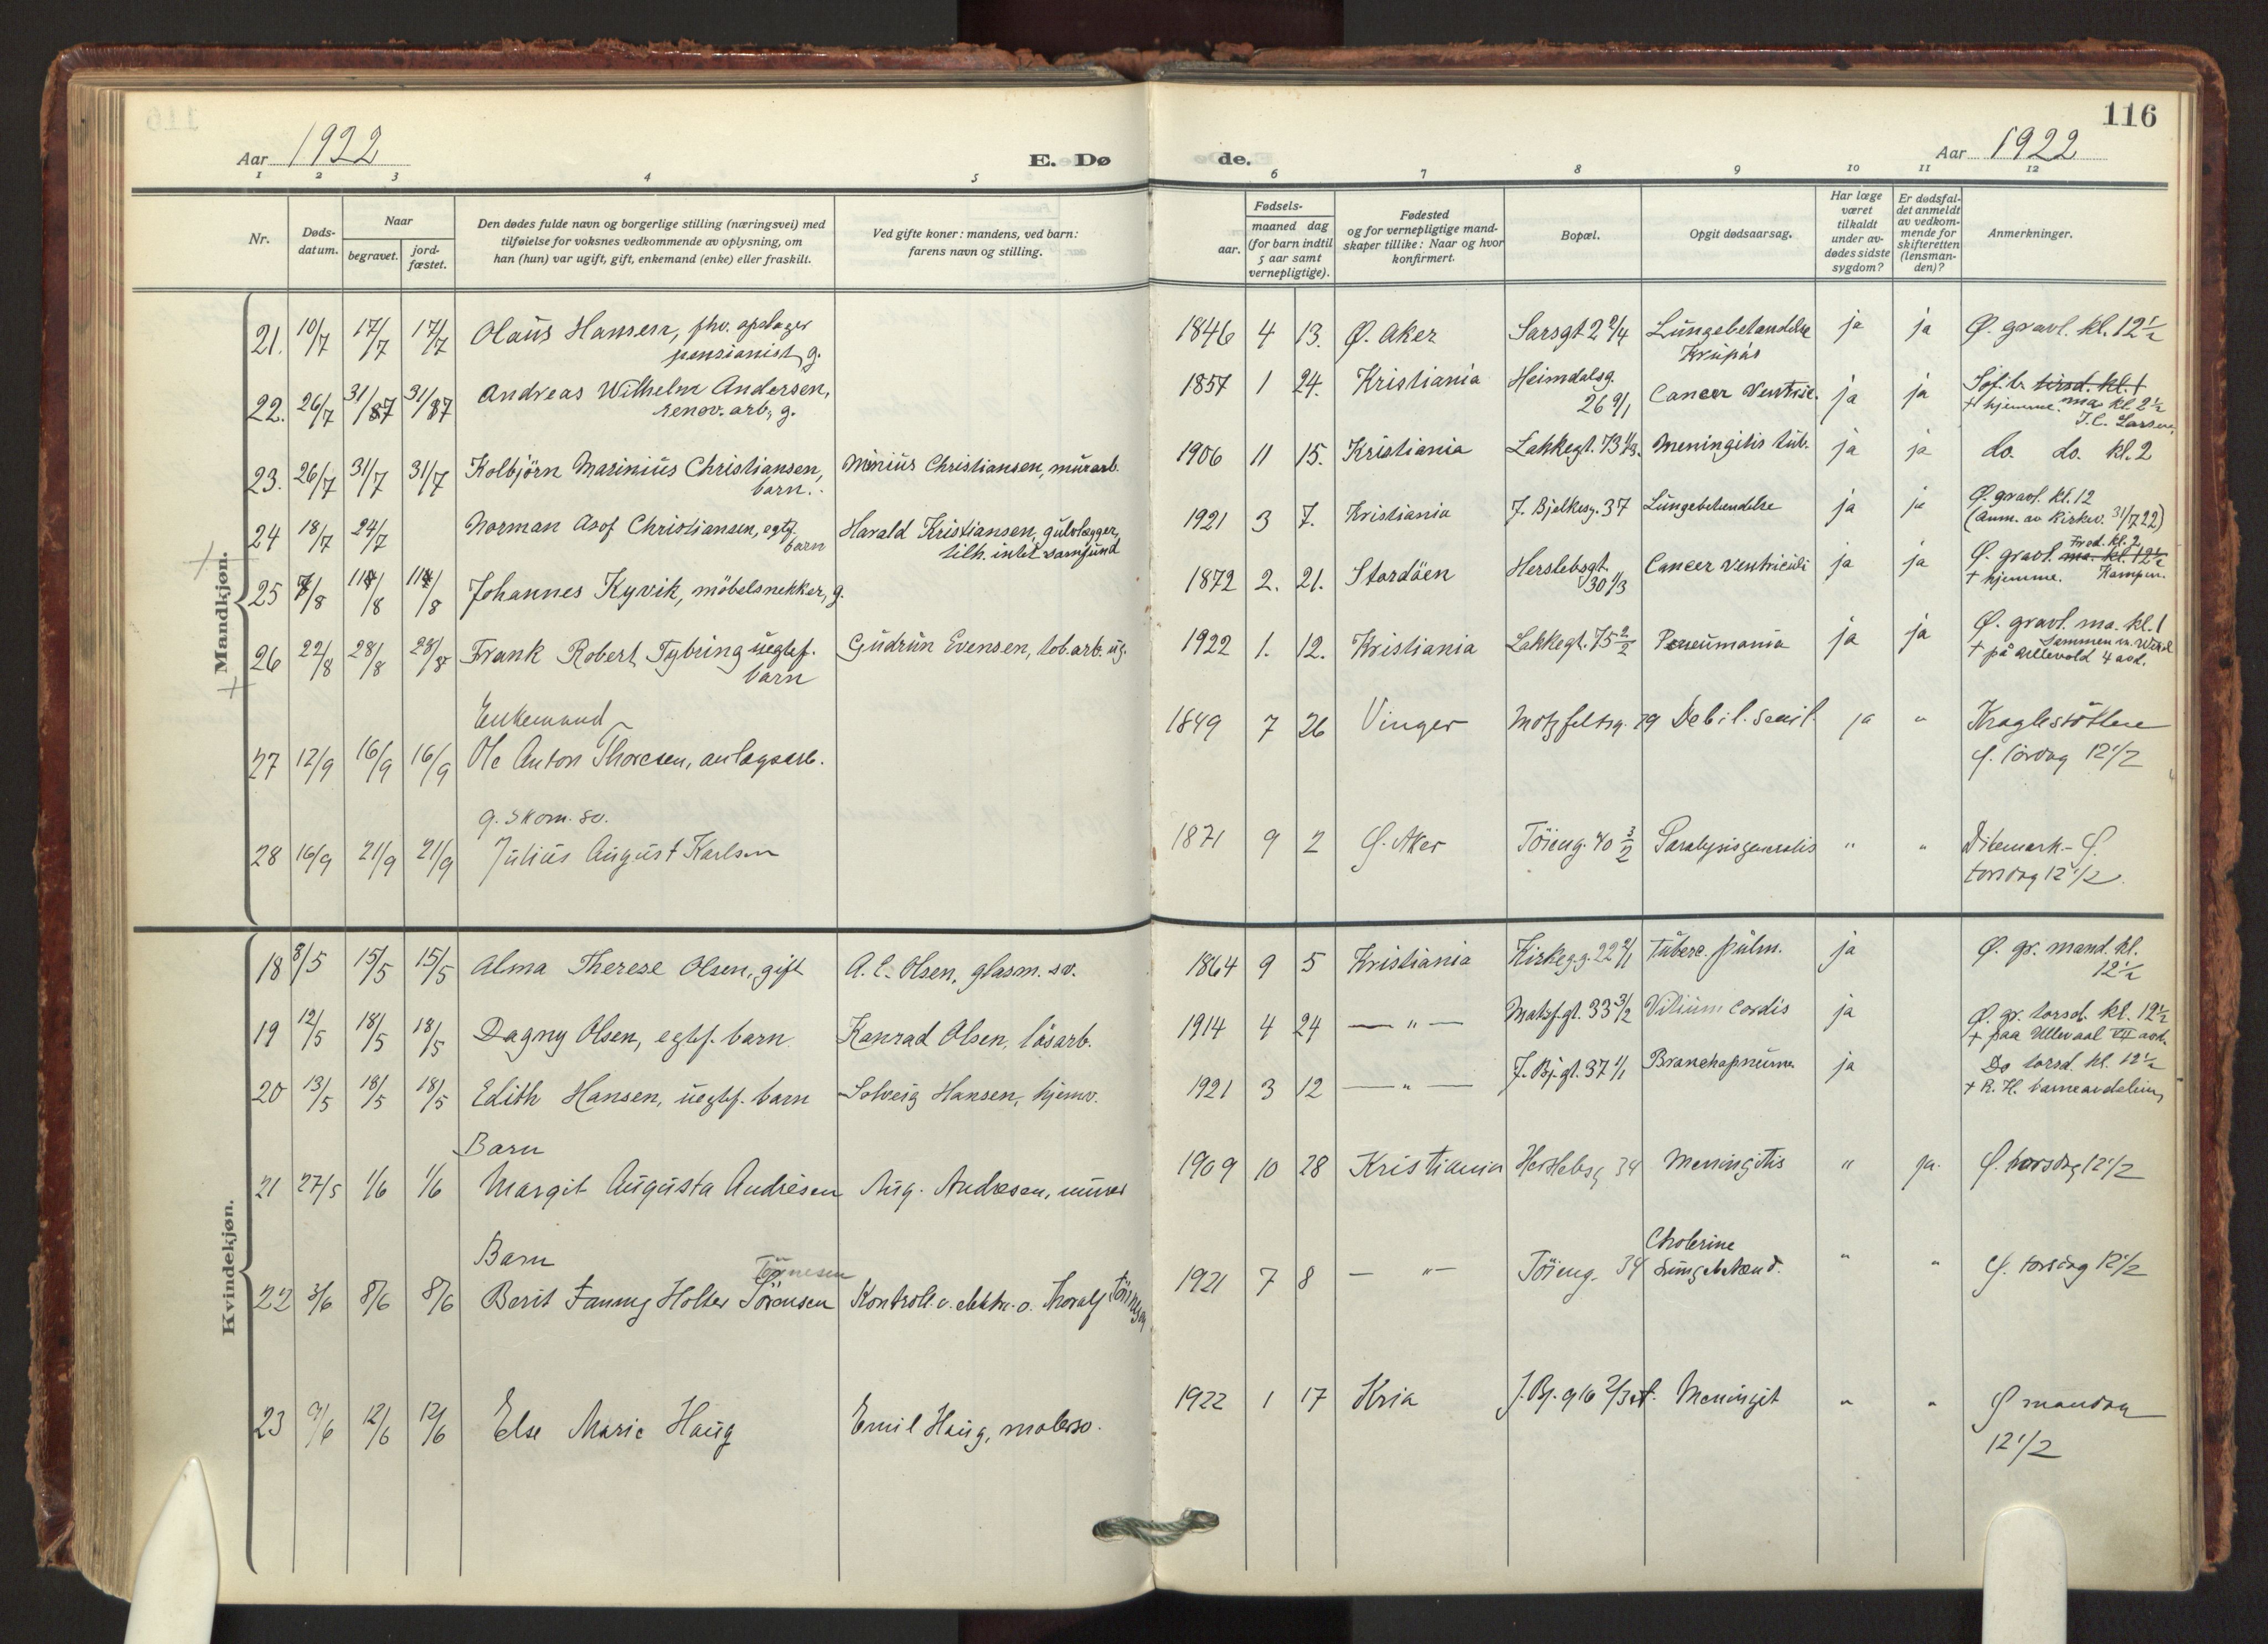 116
Aar 1922
E. Dø
de.
Aar 1922
1 2 3 4 5 6 7 8 9 10 11 12
Nr.
Døds-
datum.
Naar
begravet.
jord-
fæstet.
Den dødes fulde navn og borgerlige stilling (næringsvei) med
tilføielse for voksnes vedkommende av oplysning, om
han (hun) var ugift, gift, enkemand (enke) eller fraskilt.
Ved gifte koner: mandens, ved barn:
farens navn og stilling.
Fødsels-
aar.
maaned dag
(for barn indtil
5 aar samt
vernepligtige).
Fødested
og for vernepligtige mand-
skaper tillike: Naar og hvor
konfirmert.
Bopæl.
Opgit dødsaarsag.
Har læge
været
tilkaldt
under av-
dødes sidste
sygdom?
Er dødsfal-
det anmeldt
av vedkom-
mende for
skifteretten
(lensman-
den)?
Anmerkninger.
Mandkjøn.
21. 10/7 17/7 17/7 Olaus Hansen, fhv. opslager 1846 4 13. Ø. Aker Sarsgt. 2 2/4 Lungebetændelse ja ja Ø. gravl. kl. 12½
pensionist, g. Krupøs
22. 26/7 31/7 31/7 Andreas Wilhelm Andersen, 1857 1 24. Kristiania Heimdalsg. Cancer Ventric. ja ja Sof.b. tirsd. kl. 1
renov. arb., g. 26 9/1 + hjemme. ma. kl. 2½
J.C. Larsen
23. 26/7 31/7 31/7 Kolbjörn Marinius Christiansen, Minius Christiansen, murarb. 1906 11 15. Kristiania Lakkegt. 73 Meningitis tub. ja ja do. do. kl. 2
barn.
24 18/7 24/7 Norman Asof Christiansen, egtf. Harald Kristiansen, gulvlægger, 1921 3 7. Kristiania J. Bjelkesg. 37 Lungebetendelse ja ja Ø. gravl. kl. 12
barn tilh. intet samfund (Anm. av Kirkev. 31/7 22)
25 /8 11/8 11/8 Johannes Kyvik, möbelsnekker, g. 1872 2. 21. Stordöen Herslebsgt. Cancer ventriculi ja ja Ø. gravl. ma. kl. 12½ Fred. kl. 2
30 1/3 + hjemme. Kampen.
26 22/8 28/8 28/8 Frank Robert Tybring uegtef. Gudrun Evensen, tob.arb. ug. 1922 1. 12. Kristiania Lakkegt. 75 2/2 Pneumonia ja ja Ø. gravl. ma. kl. 1
barn Sammen m.
+ på Ullevold 4 avd.
Enkemand
27 12/9 16/9 16/9 Ole Anton Thoresen, anlægsarb. 1849 7 26 Vinger Motzfeltsg. 19 Debil. senil. ja " Kraglestötten
Ø. lördag 12 1/2
g. skom. sv.
28 16/9 21/9 21/9 Julius August Karlsen 1871 9 2 Ø. Aker Töieng. 40 3/2 Paralysis generalis " " Dikemark - Ø.
torsdag 12 1/2.
Kvindekjøn.
18 8/5 15/5 15/5 Alma Therese Olsen, gift A. C. Olsen, glasm. sv. 1864 9 5 Kristiania Kirkeg.g. 22 2/1 Tuberc. pulm. ja Ø. gr. mand. kl.
12½
19 12/5 18/5 18/5 Dagny Olsen, egtef. barn Konrad Olsen, lösarb. 1914 4 24 — " — Motzf.gt. 33 3/2 Vitium Cordis ja Ø. gr. torsd. kl. 12½
+ paa Ullevaal VII avd.
20 13/5 18/5 18/5 Edith Hansen, uegtef. barn Solveig Hansen, hjemv. 1921 3 12 — " — J. Bj. gt. 37 1/1 Bronchopneum. ja Do torsd. kl. 12½
+ R. H. barneavdeling
Barn
21 27/5 1/6 1/6 Margit Augusta Andresen Aug. Andresen, murer 1909 10 28 Kristiania Herslebsg 34 Meningitis " ja. Ø. torsdag 12 1/2
Barn Tønnesen Cholerine
22 3/6 8/6 8/6 Berit Fanny Holter Sörensen Kontroll. v. elektr. v. Thoralf Tönnesen 1921 7 8 — " — Töieng. 34 Lungebetænd. " " Ø. torsdag 12 1/2
23 9/6 12/6 12/6 Else Marie Haug Emil Haug, malersv. 1922 1 17 Kria J. Bj. g 16 2/3 et. Meningit " " Ø mandag
12 1/2